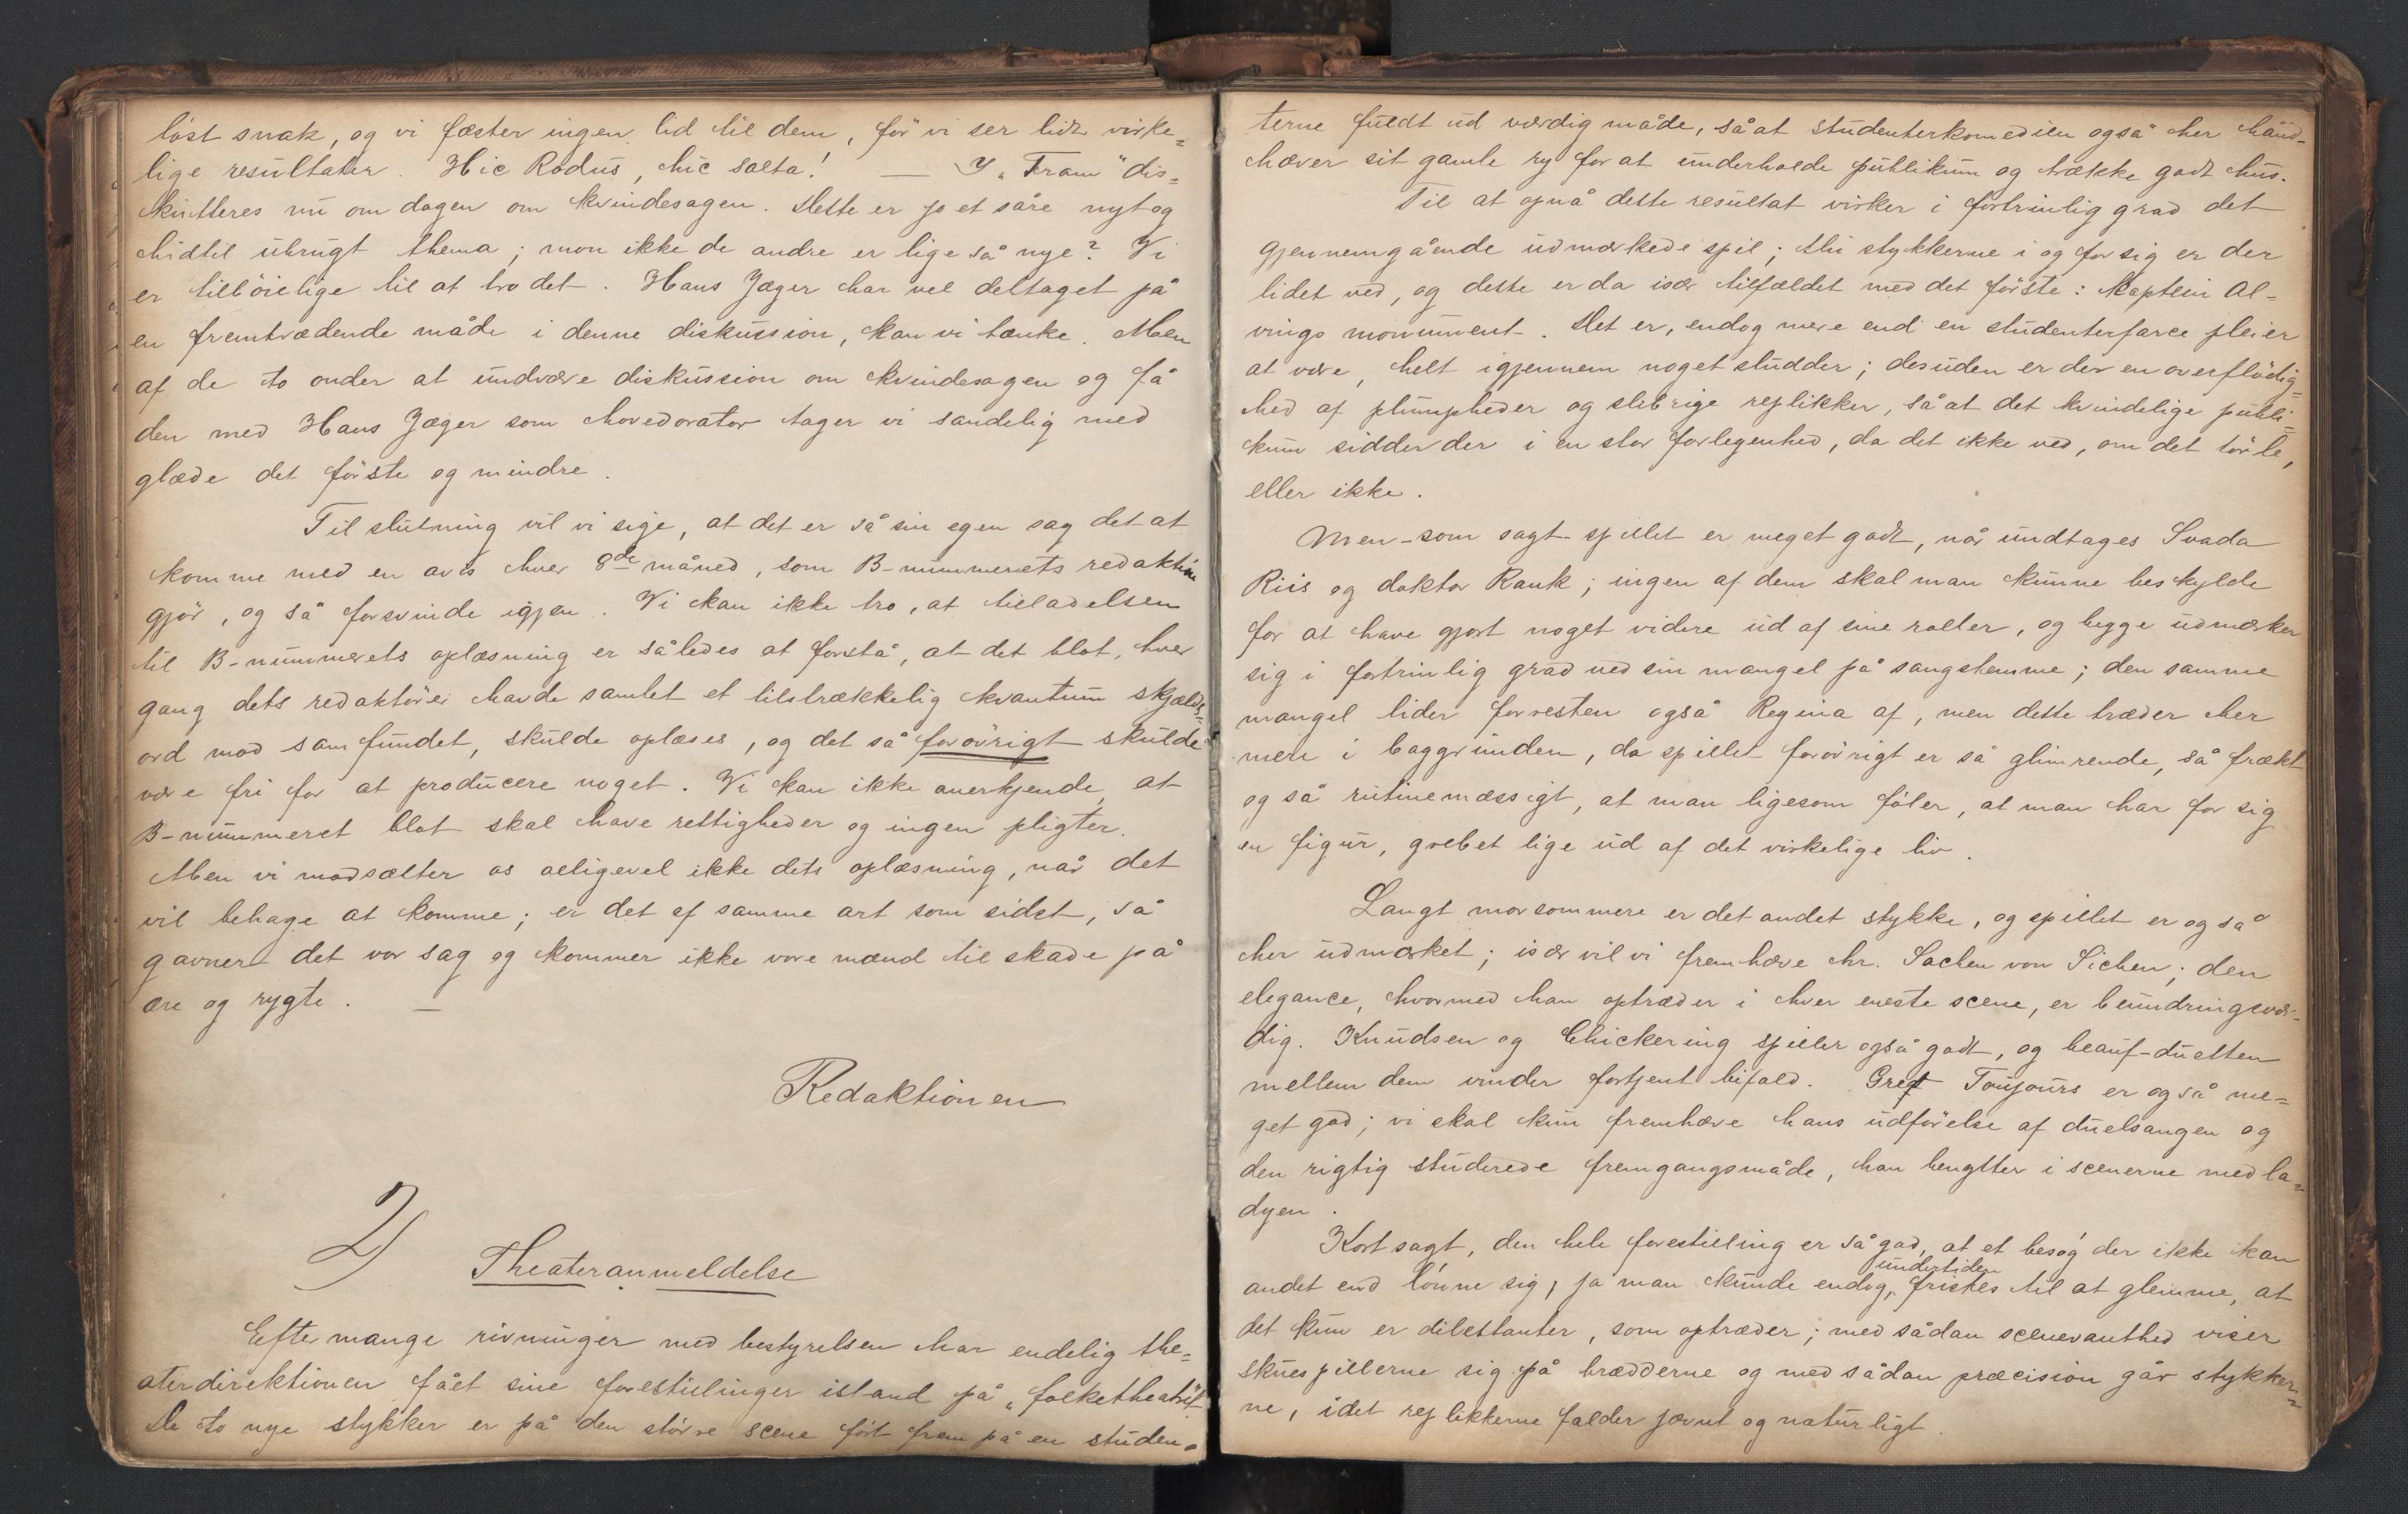 løst snak, og vi fæster ingen lid til dem, før vi ser lidt virke=
lige resultater. Hic Rodus, hic salta! — I „Fram" dis=
kutteres nu om dagen om kvindesagen. Dette er jo et såre nyt og
hidtil ubrugt thema; mon ikke de andre er lige så nye? Vi
er tilbøielige til at tro det. Hans Jæger har vel deltaget på
en fremtrædende måde i denne diskussion, kan vi tænke. Men
af de to onder at undvære diskussion om kvindesagen og få
den med Hans Jæger som hovedorator tager vi sandelig med
glæde det første og mindre.
Til slutning vil vi sige, at det er så sin egen sag det at
komme med en avis hver 8de måned, som B-nummerets redaktion
gjør, og så forsvinde igjen. Vi kan ikke tro, at tilladelsen
til B-nummerets oplæsning er således at forstå, at det blot, hver
gang dets redaktører havde samlet et tilstrækkelig kvantum skjælds=
ord mod samfundet, skulde oplæses, og det så forøvrigt skulde
være fri for at producere noget. Vi kan ikke anerkjende, at
B-nummeret blot skal have rettigheder og ingen pligter.
Men vi modsætter os alligevel ikke dets oplæsning, når det
vil behage at komme; er det af samme art som sidst, så
gavner det vor sag og kommer ikke vore mænd til skade på
ære og rygte. —
Redaktionen
2)
Theateranmeldelse
Efter mange rivninger med bestyrelsen har endelig the=
aterdirektionen fået sine forestillinger istand på „folketheatret".
De to nye stykker er på den større scene ført frem på en studen=
terne fuldt ud værdig måde, så at studenterkomedien også her hånd=
hæver sit gamle ry for at underholde publikum og trække godt hus.
Til at opnå dette resultat virker i fortrinlig grad det
gjennemgående udmærkede spil; thi stykkerne i og for sig er der
lidet ved, og dette er da især tilfældet med det første: Kaptein Al=
vings monument. Det er, endog mere end en studenterfarce pleier
at være, helt igjennem noget sludder; desuden er der en overflødig=
hed af plumpheder og slibrige replikker, så at det kvindelige publi=
kum sidder der i en stor forlegenhed, da det ikke ved, om det tør le,
eller ikke.
Men - som sagt - spillet er meget godt, når undtages Svada
Riis og doktor Rank; ingen af dem skal man kunne beskylde
for at have gjort noget videre ud af sine roller, og begge udmærker
sig i fortrinlig grad ved sin mangel på sangstemme; den samme
mangel lider forresten også Regina af, men dette træder her
mere i baggrunden, da spillet forøvrigt er så glimrende, så frækt
og så rutinemæssigt, at man ligesom føler, at man har for sig
en figur, grebet lige ud af det virkelige liv.
Langt morsommere er det andet stykke, og spillet er også
her udmærket; især vil vi fremhæve hr. Sachen von Sichen; den
elegance, hvormed han optræder i hver eneste scene, er beundringsvær=
dig. Knudsen og Chickering spiller også godt, og beauf-duetten
mellem dem vinder fortjent bifald. Toujours er også me=
get god; vi skal kun fremhæve hans udførelse af duelsangen og
den rigtig studerede fremgangsmåde, han benytter i scenerne med la=
dyen.
Kort sagt, den hele forestilling er så god, at et besøg der ikke kan
andet end lønne sig, ja man kunde endog undertiden fristes til at glemme, at
det kun er dilettanter, som optræder; med sådan scenevanthed viser
skuespillerne sig på brædderne og med sådan præcision går stykker=
ne, idet replikkerne falder jævnt og naturligt.